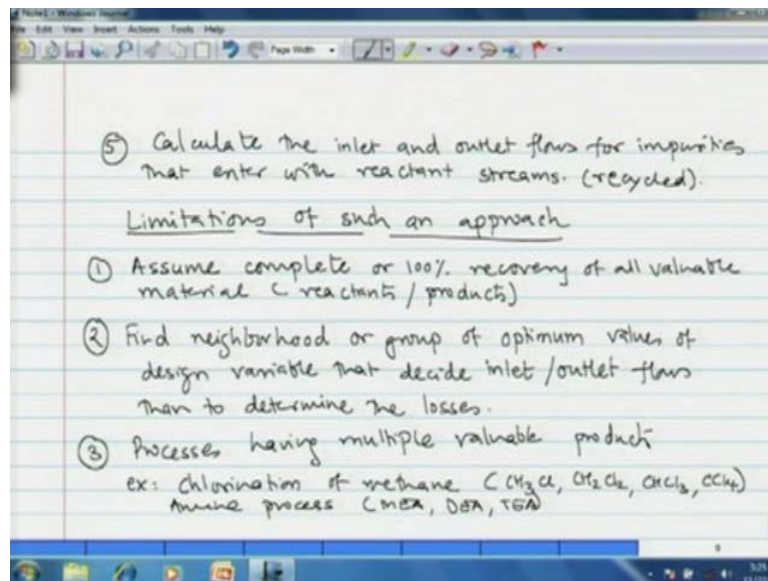 Note1 - Windows Journal
File Edit View Insert Actions Tools Help
Page Width
⑤ Calculate the inlet and outlet flows for impurities
that enter with reactant streams. (recycled).
Limitations of such an approach
① Assume complete or 100% recovery of all valuable
material ( reactants / products)
② Find neighborhood or group of optimum values of
design variable that decide inlet /outlet flows
than to determine the losses.
③ Processes having multiple valuable product
ex: Chlorination of methane ( CH3Cl, CH2Cl2, CHCl3, CCl4)
Amine process (MEA, DEA, TEA)
9
3:25